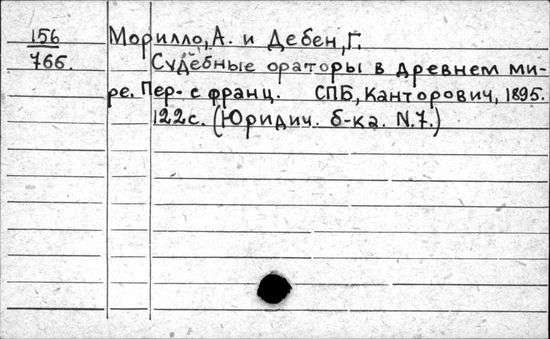 156
766.
Морилло, А. и Дебен, Г.
Судебные ораторы в древнем ми-
ре. Пер. с франц. СПБ, Канторович, 1895.
122с. (Юридич. б-ка. N.7.)